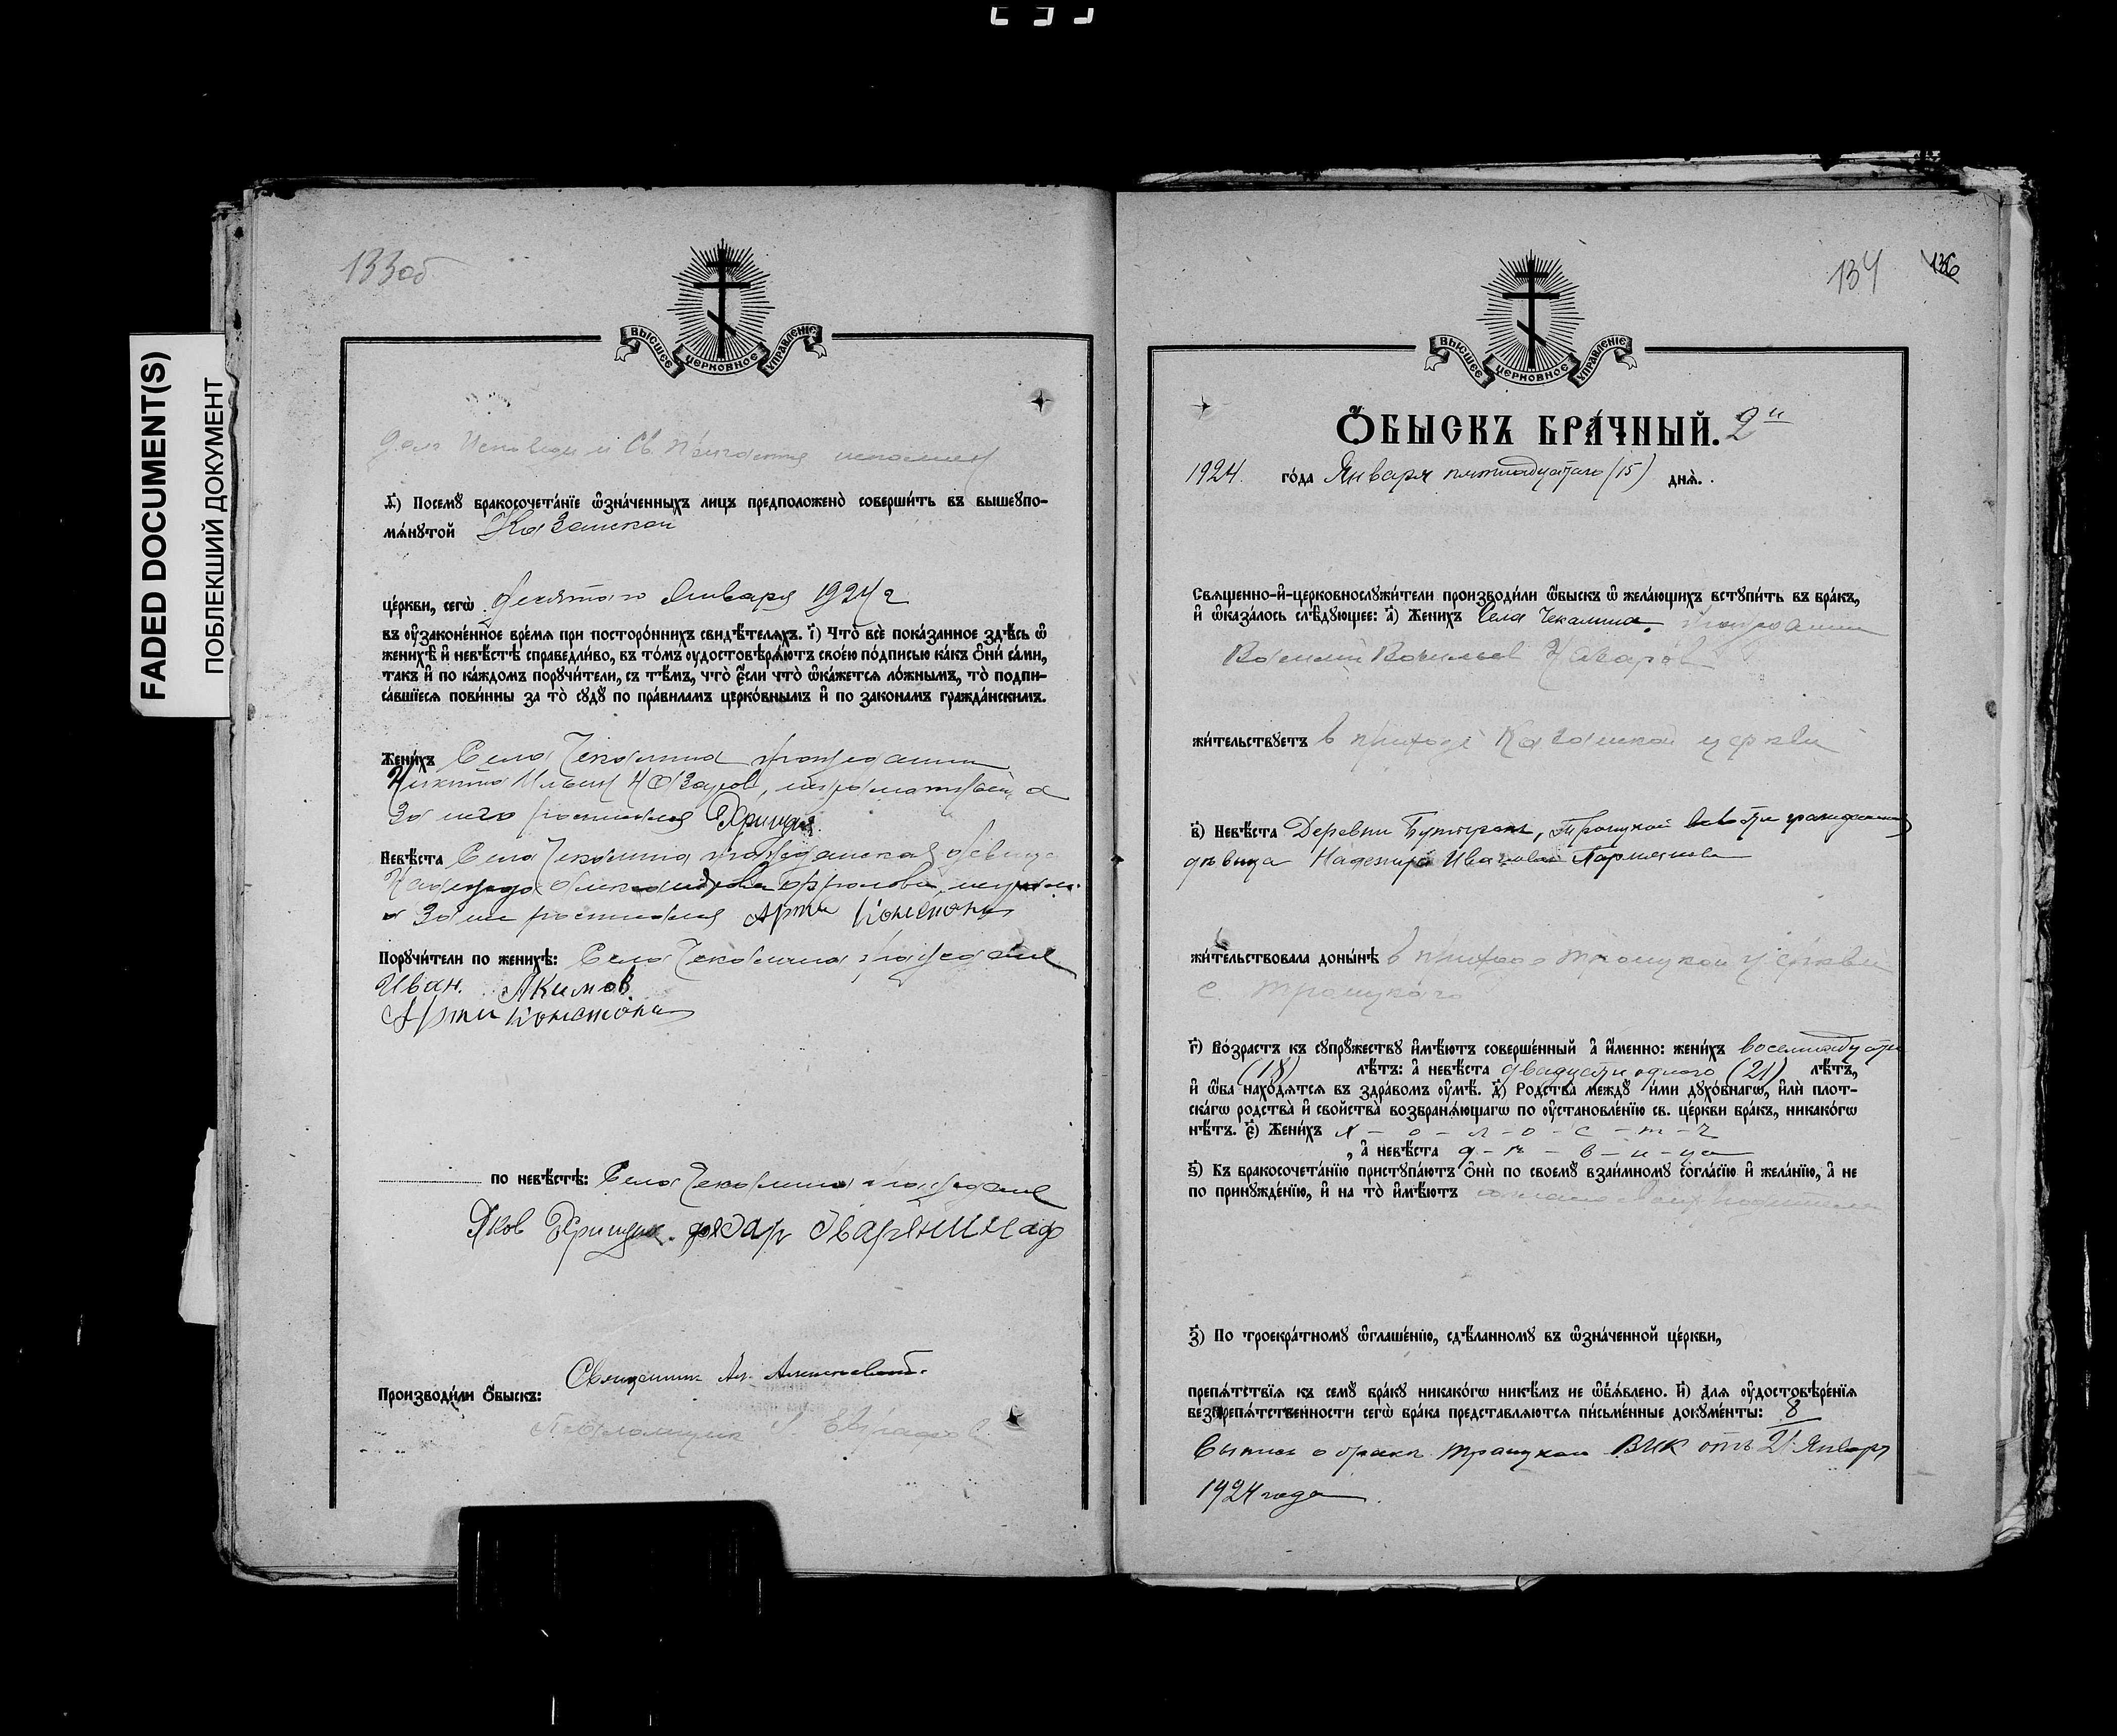 FADED DOCUMENT(S)
ПОБЛЕКШИЙ ДОКУМЕНТ
133об
ВЫСШЕЕ ЦЕРКОВНОЕ УПРАВЛЕНІЕ
долг Исповеди и Св. Причастия исполнен
Д҃) Посемꙋ бракосочета́нїе ѡ҆зна́ченныхъ лицъ предположено̀ соверши́ть въ вышеꙋпо-
мѧ́нꙋтой Казанской
це́ркви, сегѡ̀ десятого Января 1924 г
въ ᲂу҆зако́ненное вре́мя при посторо́ннихъ свидѣ́теляхъ. І҃) Что̀ всѐ пока́занное здѣ́сь ѡ҆
женихѣ̀ и҆ невѣ́стѣ справедли́во, въ то́мъ ᲂу҆достовѣрѧ́ютъ свое́ю по́дписью ка́къ ѻ҆нѝ са́ми,
та́къ и҆ по ка́ждомъ порꙋчи́тели, съ тѣ́мъ, что̀ є҆́сли что̀ ѡ҆ка́жется ло́жнымъ, то̀ подпи-
са́вшїеся пови́нны за то̀ сꙋдꙋ̀ по пра́виламъ церко́внымъ и҆ по зако́намъ гражда́нскимъ.
Жени́хъ Села Чекалина гражданин
Никита Ильин Назаров, неграматный, а
За него росписался
Невѣ́ста Села Чекалина гражданская девица
Надежда Александрова Фролова,
а За не росписался Арти
Порꙋчи́тели по женихѣ̀: Села Чекалина граждане
Иван. Акимов
Арти
по невѣ́стѣ: Села Чекалина граждане
Яков
Производи́ли Ѻ҆́быскъ: Священник Ал.
Псаломщик
134 136
ВЫСШЕЕ ЦЕРКОВНОЕ УПРАВЛЕНІЕ
Ѻ҆́БЫСКЪ БРА́ЧНЫЙ. 2й
1924. го́да Января пятнадцатого (15) днѧ̀.
Священно-и҆-церковнослꙋжи́тели производи́ли ѻ҆́быскъ ѡ҆ жела́ющихъ встꙋпи́ть въ бра́къ,
и҆ ѡ҆каза́лось слѣ́дꙋющее: а҃) Жени́хъ Села Чекалина гражданин
Василий Васильев Назаров
жи́тельствꙋетъ в приходе Казанской церкви
в҃) Невѣ́ста Деревни Бутырок, Троицкой волости гражданка
дѣвица Надежда Иванова
жи́тельствовала доны́нѣ в приходе Троицкой церкви
с. Троицкого
г҃) Во́зрастъ къ сꙋпрꙋ́жествꙋ и҆мѣ́ютъ соверше́нный а҆ и҆́менно: жени́хъ восемнадцати
(18) лѣ́тъ: а҆ невѣ́ста двадцати одного (21) лѣ́тъ,
и҆ ѻ҆́ба нахо́дятся въ здра́вомъ ᲂу҆мѣ̀. Д҃) Родства̀ междꙋ̀ и́ми дꙋхо́внагѡ, и҆лѝ плот-
ска́гѡ родства̀ и҆ свойства̀ возбранѧ́ющагѡ по ᲂу҆становле́нїю св. це́ркви бра́къ, никако́гѡ
нѣ́тъ. є҃) Жени́хъ х - о - л - о - с - т - г
, а҆ невѣ́ста д - ѣ - в - и - ца
ѕ҃) Къ бракосочета́нїю пристꙋпа́ютъ ѻ҆нѝ по своемꙋ̀ взаи́мномꙋ согла́сїю и҆ жела́нїю, а҆ не
по принꙋжде́нїю, и҆ на то̀ и҆мѣ́ютъ согласие
з҃) По троекра́тномꙋ ѡ҆глаше́нїю, сдѣ́ланномꙋ въ ѡ҆зна́ченной це́ркви,
препѧ́тствїя къ семꙋ̀ бра́кꙋ никако́гѡ никѣ́мъ не ѡ҆б̾ѧ́влено. И҃) Для ᲂу҆достовѣре́нїя
безпрепѧ́тственности сегѡ̀ бра́ка представля́ются пи́сьменные докꙋме́нты: 8
Выпись о браке Троицкой ВИК отъ 21 Января
1924 года